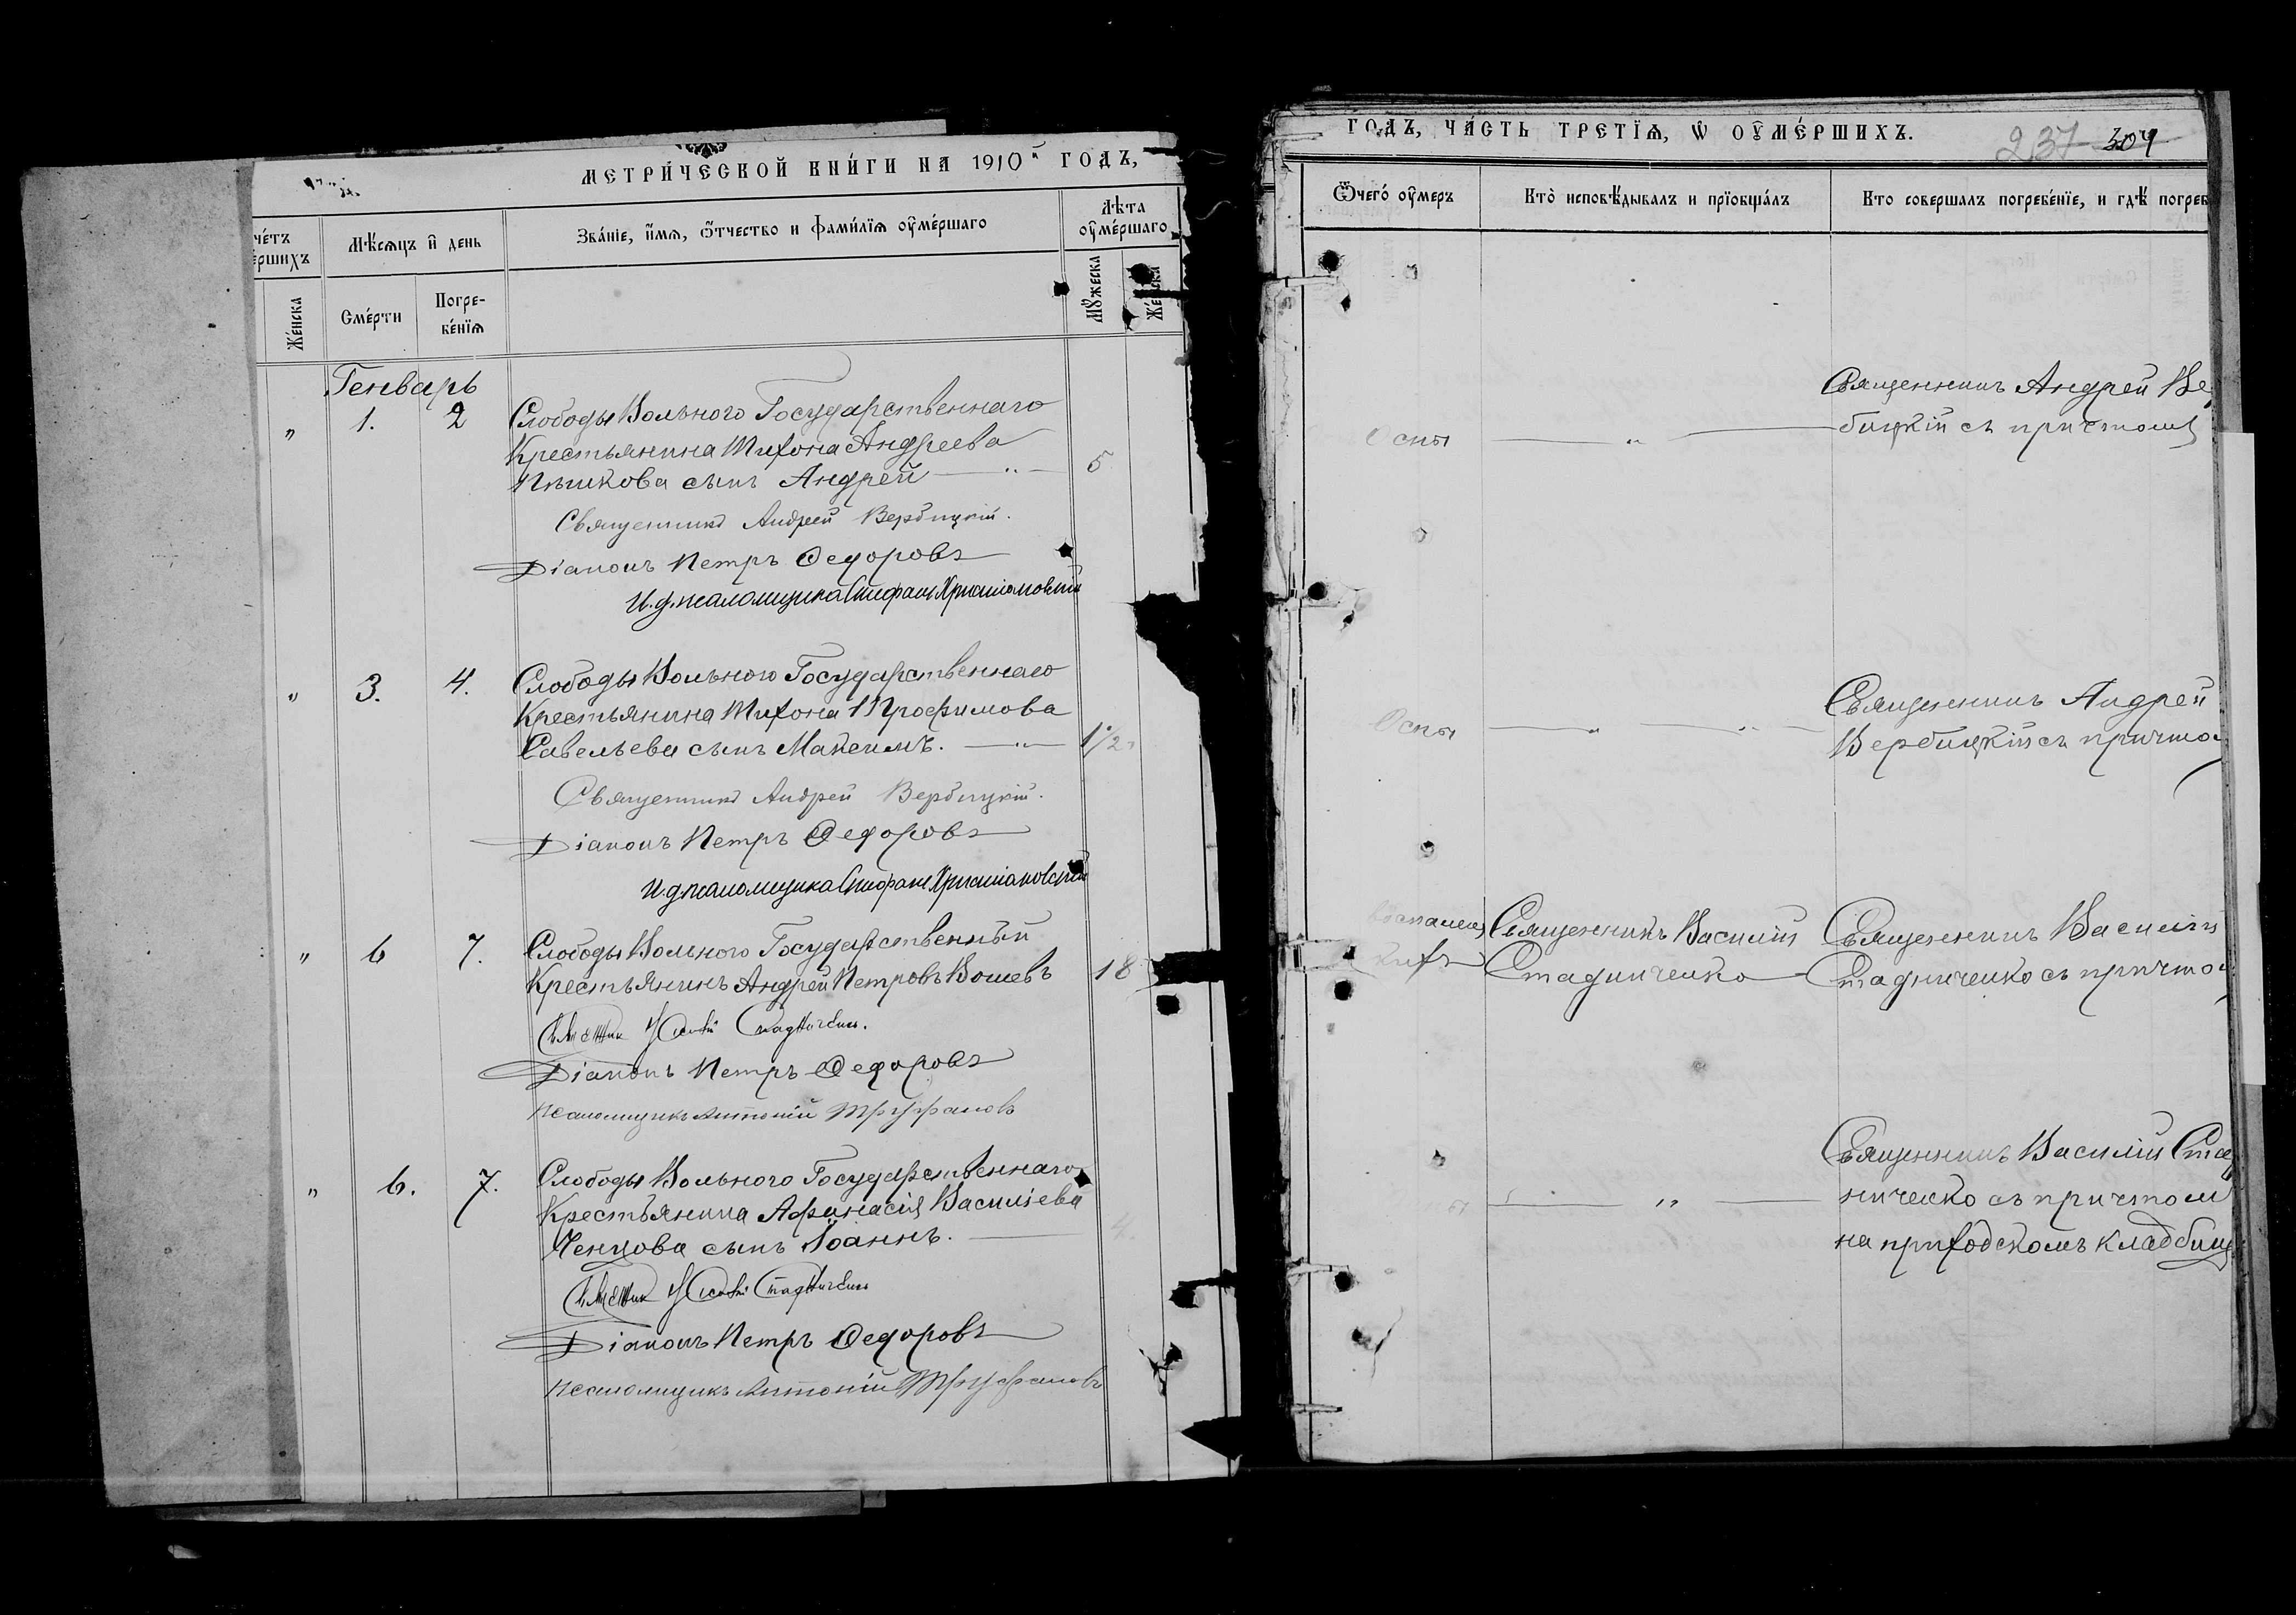 МЕТРИ́ЧЕСКОЙ КНИ́ГИ НА 1910й ГОДЪ,
че́тъ
е́ршихъ
Мѣ́сяцъ и҆ день
Зва́ніе, и҆́мя, ѻ҆́тчество и фами́лїя ᲂу҆ме́ршаго
Лѣта
ᲂу҆ме́ршаго
Же́нска
Сме́рти
Погре-
бе́нїя
Мꙋ́жеска
Же́нска
Генварь
„ 1. 2 Слободы Вольного Государственнаго
Крестьянина Тихона Андреева
сынъ Андрей — „ — 5
Священникъ Андрей Вербицкій.
Діаконъ Петръ Ѳедоровъ
И. д. псаломщика Стефанъ Христіановскій
„ 3. 4. Слободы Вольного Государственнаго
Крестьянина Тихона Трофимова
Савельева сынъ Максимъ. — „ — 1½
Священникъ Андрей Вербицкій.
Діаконъ Петръ Ѳедоровъ
И. д. псаломщика Стефанъ Христіановскій
„ 6 7. Слободы Вольного Государственный
Крестьянинъ Андрей Петровъ 18
Священник Василій Стадниченко.
Діаконъ Петръ Ѳедоровъ
Псаломщикъ Антоній Труфановъ
„ 6. 7. Слободы Вольного Государственнаго
Крестьянина Афанасія Васильева
Ченцова сынъ Іоаннъ. — 4.
Священник Василій Стадниченко
Діаконъ Петръ Ѳедоровъ
Псаломщикъ Антоній Труфановъ
ГОДЪ, ЧА́СТЬ ТРЕТЇЯ, Ѡ҆ ОУ҆МЕ́РШИХЪ.
237 304
Ѿчегѡ́ ᲂу҆меръ
Кто̀ исповѣ́дывалъ и прїобща́лъ
Кто соверша́лъ погребе́нїе, и гдѣ̀ погреб
Оспы — „ — Священникъ Андрей Ве
бицкій съ причтомъ
Оспы — „ — „ — Священникъ Андрей
Вербицкій съ причто
Священникъ Василій Священникъ Василій
Стадниченко Стадниченко съ причто
— „ — Священникъ Василій Стад
ниченко съ причтом
на приходскомъ кладбищ